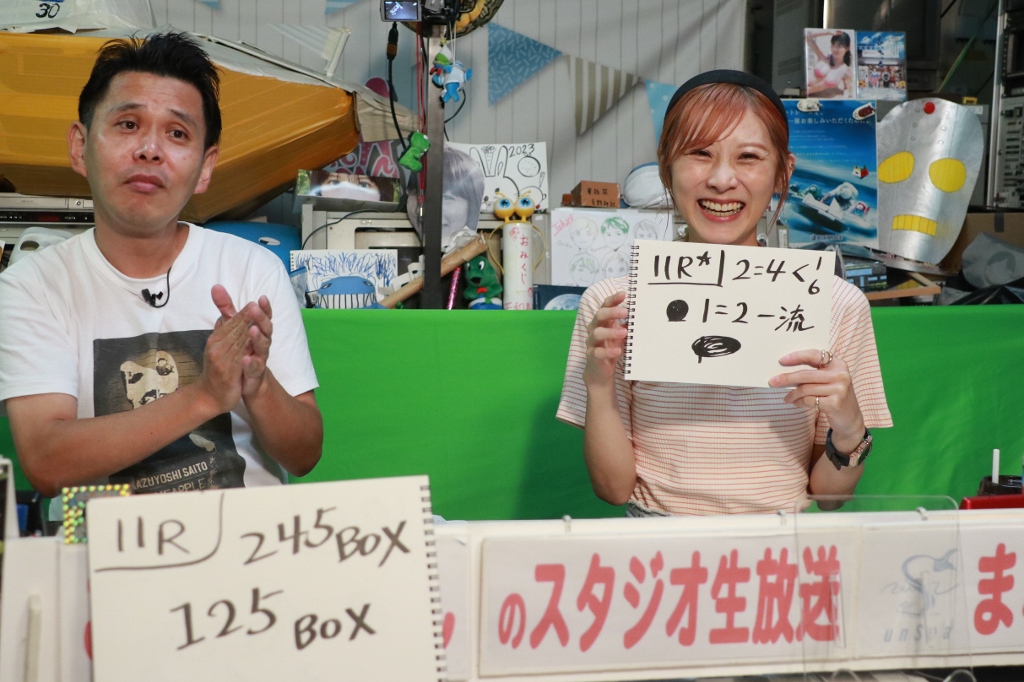 30
2023
おみくじ
11R* 2=4<1 6
● 1=2-流
AZUYOSHI SAITO
NEAPPLE
11R 245BOX
125 BOX
のスタジオ生放送
ま